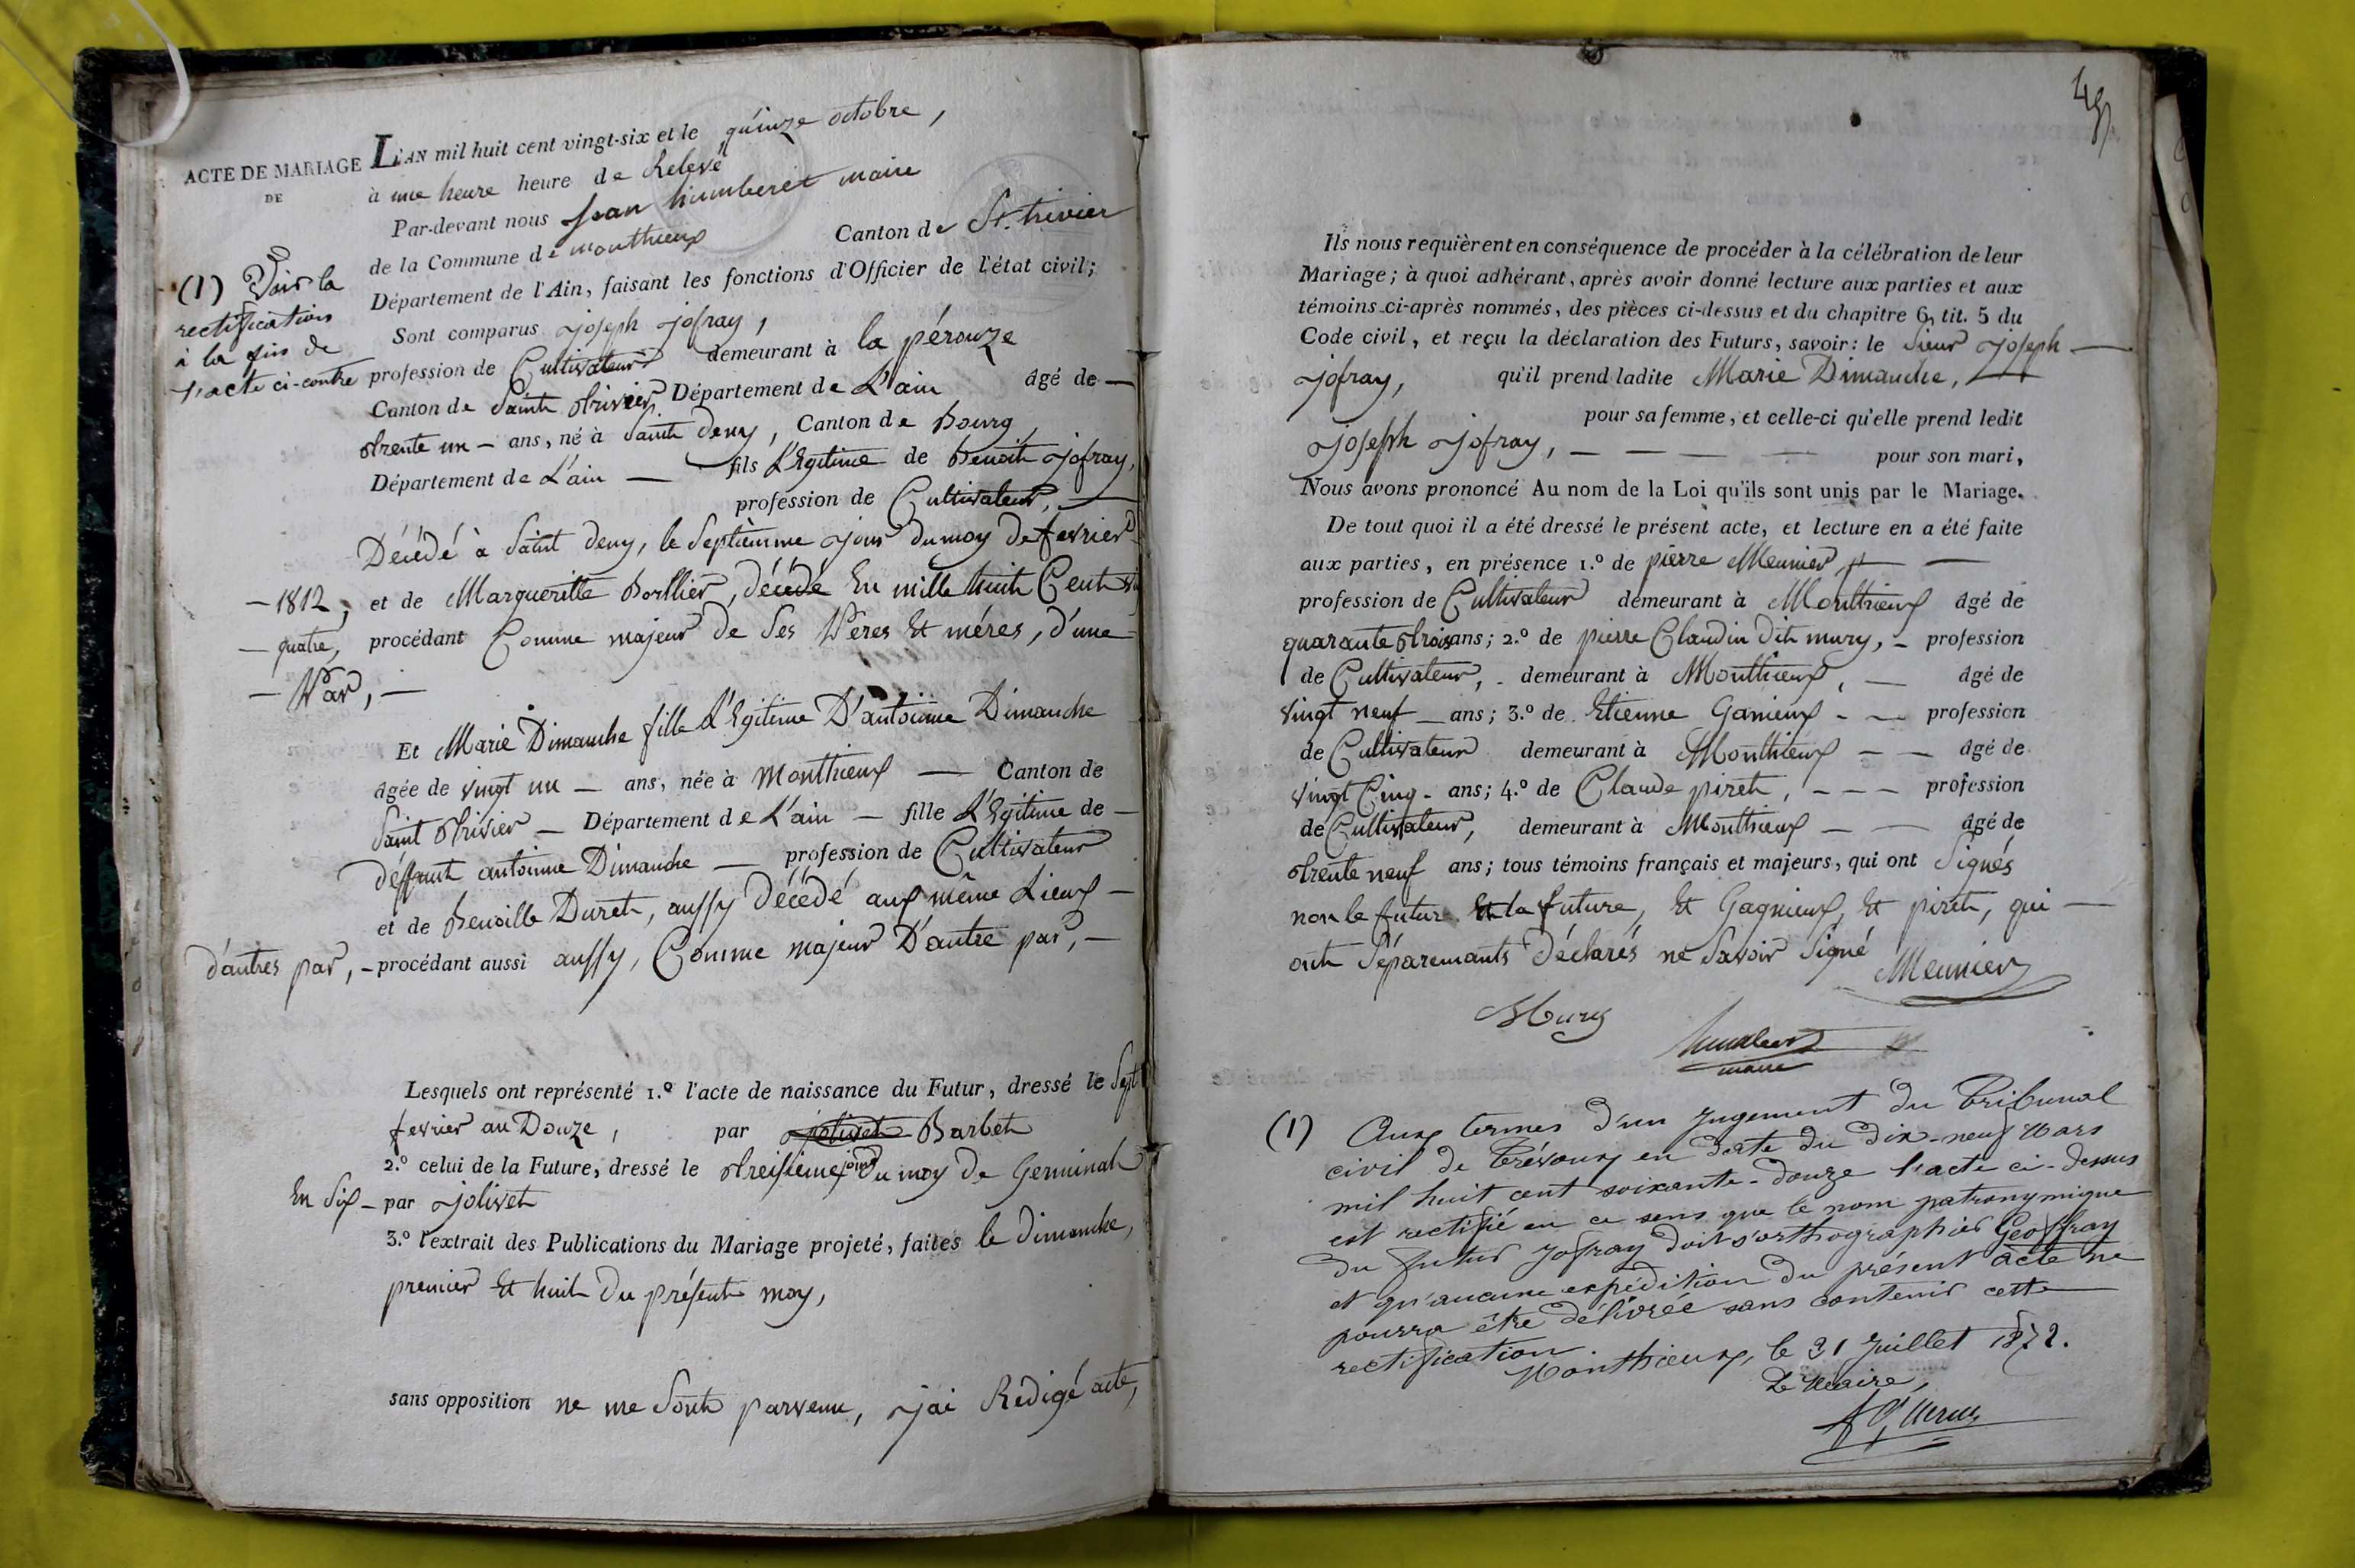 ACTE DE MARIAGE
DE
(1) Voir la
rectification
à la fin de
l'acte ci-contre
L'AN mil huit cent vingt-six et le quinze octobre,
à une heure heure de Relevé
Par-devant nous Jean humbert maire
de la Commune de monthieux Canton de St. trivier
Département de l'Ain, faisant les fonctions d'Officier de l'état civil;
Sont comparus joseph jofray,
profession de Cultivateur demeurant à la pérouze
Canton de Saint trivier Département de L'ain âgé de —
trente un — ans, né à Saint deny, Canton de Bourg,
Département de L'ain — fils L'Egitime de Benoit jofray,
profession de Cultivateur, —
Décédé à Saint deny, le Septiemme jour du moy de fevrier
— 1812, et de Margueritte Borllier, décédé En mille huit Cent
— quatre, procédant Comme majeur de Ses Peres Et méres, d'une
— Par, —
Et Marie Dimanche fille L'Egitime D'antoinne Dimanche
âgée de vingt un — ans, née à Monthieux — Canton de
Saint trivier — Département de L'ain — fille L'Egitime de —
déffunt antoinne Dimanche — profession de Cultivateur
et de Benoitte Duret, aussy Décédé aux même Lieux —
d'autres par, — procédant aussi aussy, Comme majeur D'autre par, —
Lesquels ont représenté 1.º l'acte de naissance du Futur, dressé le Sept
fevrier an Douze, par jolivet Barbet
2.º celui de la Future, dressé le treisieme jour du moy de Germinal
En Six — par jolivet
3.º l'extrait des Publications du Mariage projeté, faites le Dimanche,
premier Et huit Du présent moy,
sans opposition ne me Sont parvenu, j'ai Rédigé acte,
49
Ils nous requièrent en conséquence de procéder à la célébration de leur
Mariage; à quoi adhérant, après avoir donné lecture aux parties et aux
témoins ci-après nommés, des pièces ci-dessus et du chapitre 6, tit. 5 du
Code civil, et reçu la déclaration des Futurs, savoir: le Sieur joseph —
jofray, qu'il prend ladite Marie Dimanche, —
pour sa femme, et celle-ci qu'elle prend ledit
joseph jofray, — — — — pour son mari,
Nous avons prononcé Au nom de la Loi qu'ils sont unis par le Mariage.
De tout quoi il a été dressé le présent acte, et lecture en a été faite
aux parties, en présence 1.º de pierre Meunier, — —
profession de Cultivateur demeurant à Monthieux âgé de
quarante trois ans; 2.º de pierre Claudin Dit mury, — profession
de Cultivateur, - demeurant à Monthieux, — âgé de
Vingt neuf — ans; 3.º de Etienne Ganieux - — profession
de Cultivateur demeurant à Monthieux — — âgé de
vingt Cinq - ans; 4.º de Claude piret, - — — profession
de Cultivateur, demeurant à Monthieux — — âgé de
trente neuf ans; tous témoins français et majeurs, qui ont Signés
non le futur Et la future, Et Gagnieux, Et piret, qui —
ont Séparemants Déclarés ne Savoir Signé Meunier
Mury
humbert
maire
(1) Aux termes d'un jugement du Tribunal
civil de Trévoux en date du dix-neuf Mars
mil huit cent soixante-douze l'acte ci-dessus
est rectifié en ce sens que le nom patronymique
du futur Jofray doit s'orthographier Geoffray
et qu'aucune expédition du présent acte ne
pourra être délivrée sans contenir cette
rectification.
Monthieux, le 31 Juillet 1872.
Le Maire,